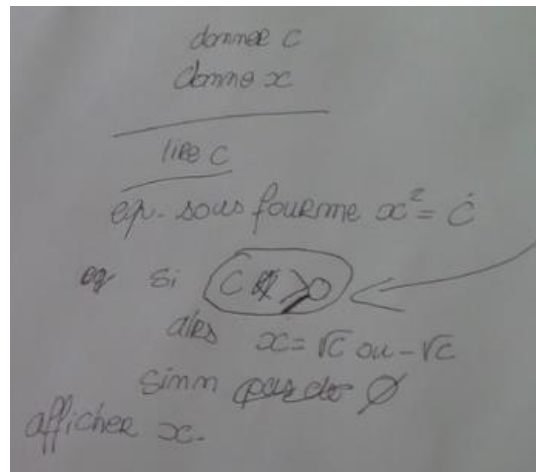 donner c
donne x
lire c
eq. sous fourme x² = c
eq si C ≥ 0
alrs x = √c ou -√c
sinn ∅
afficher x.